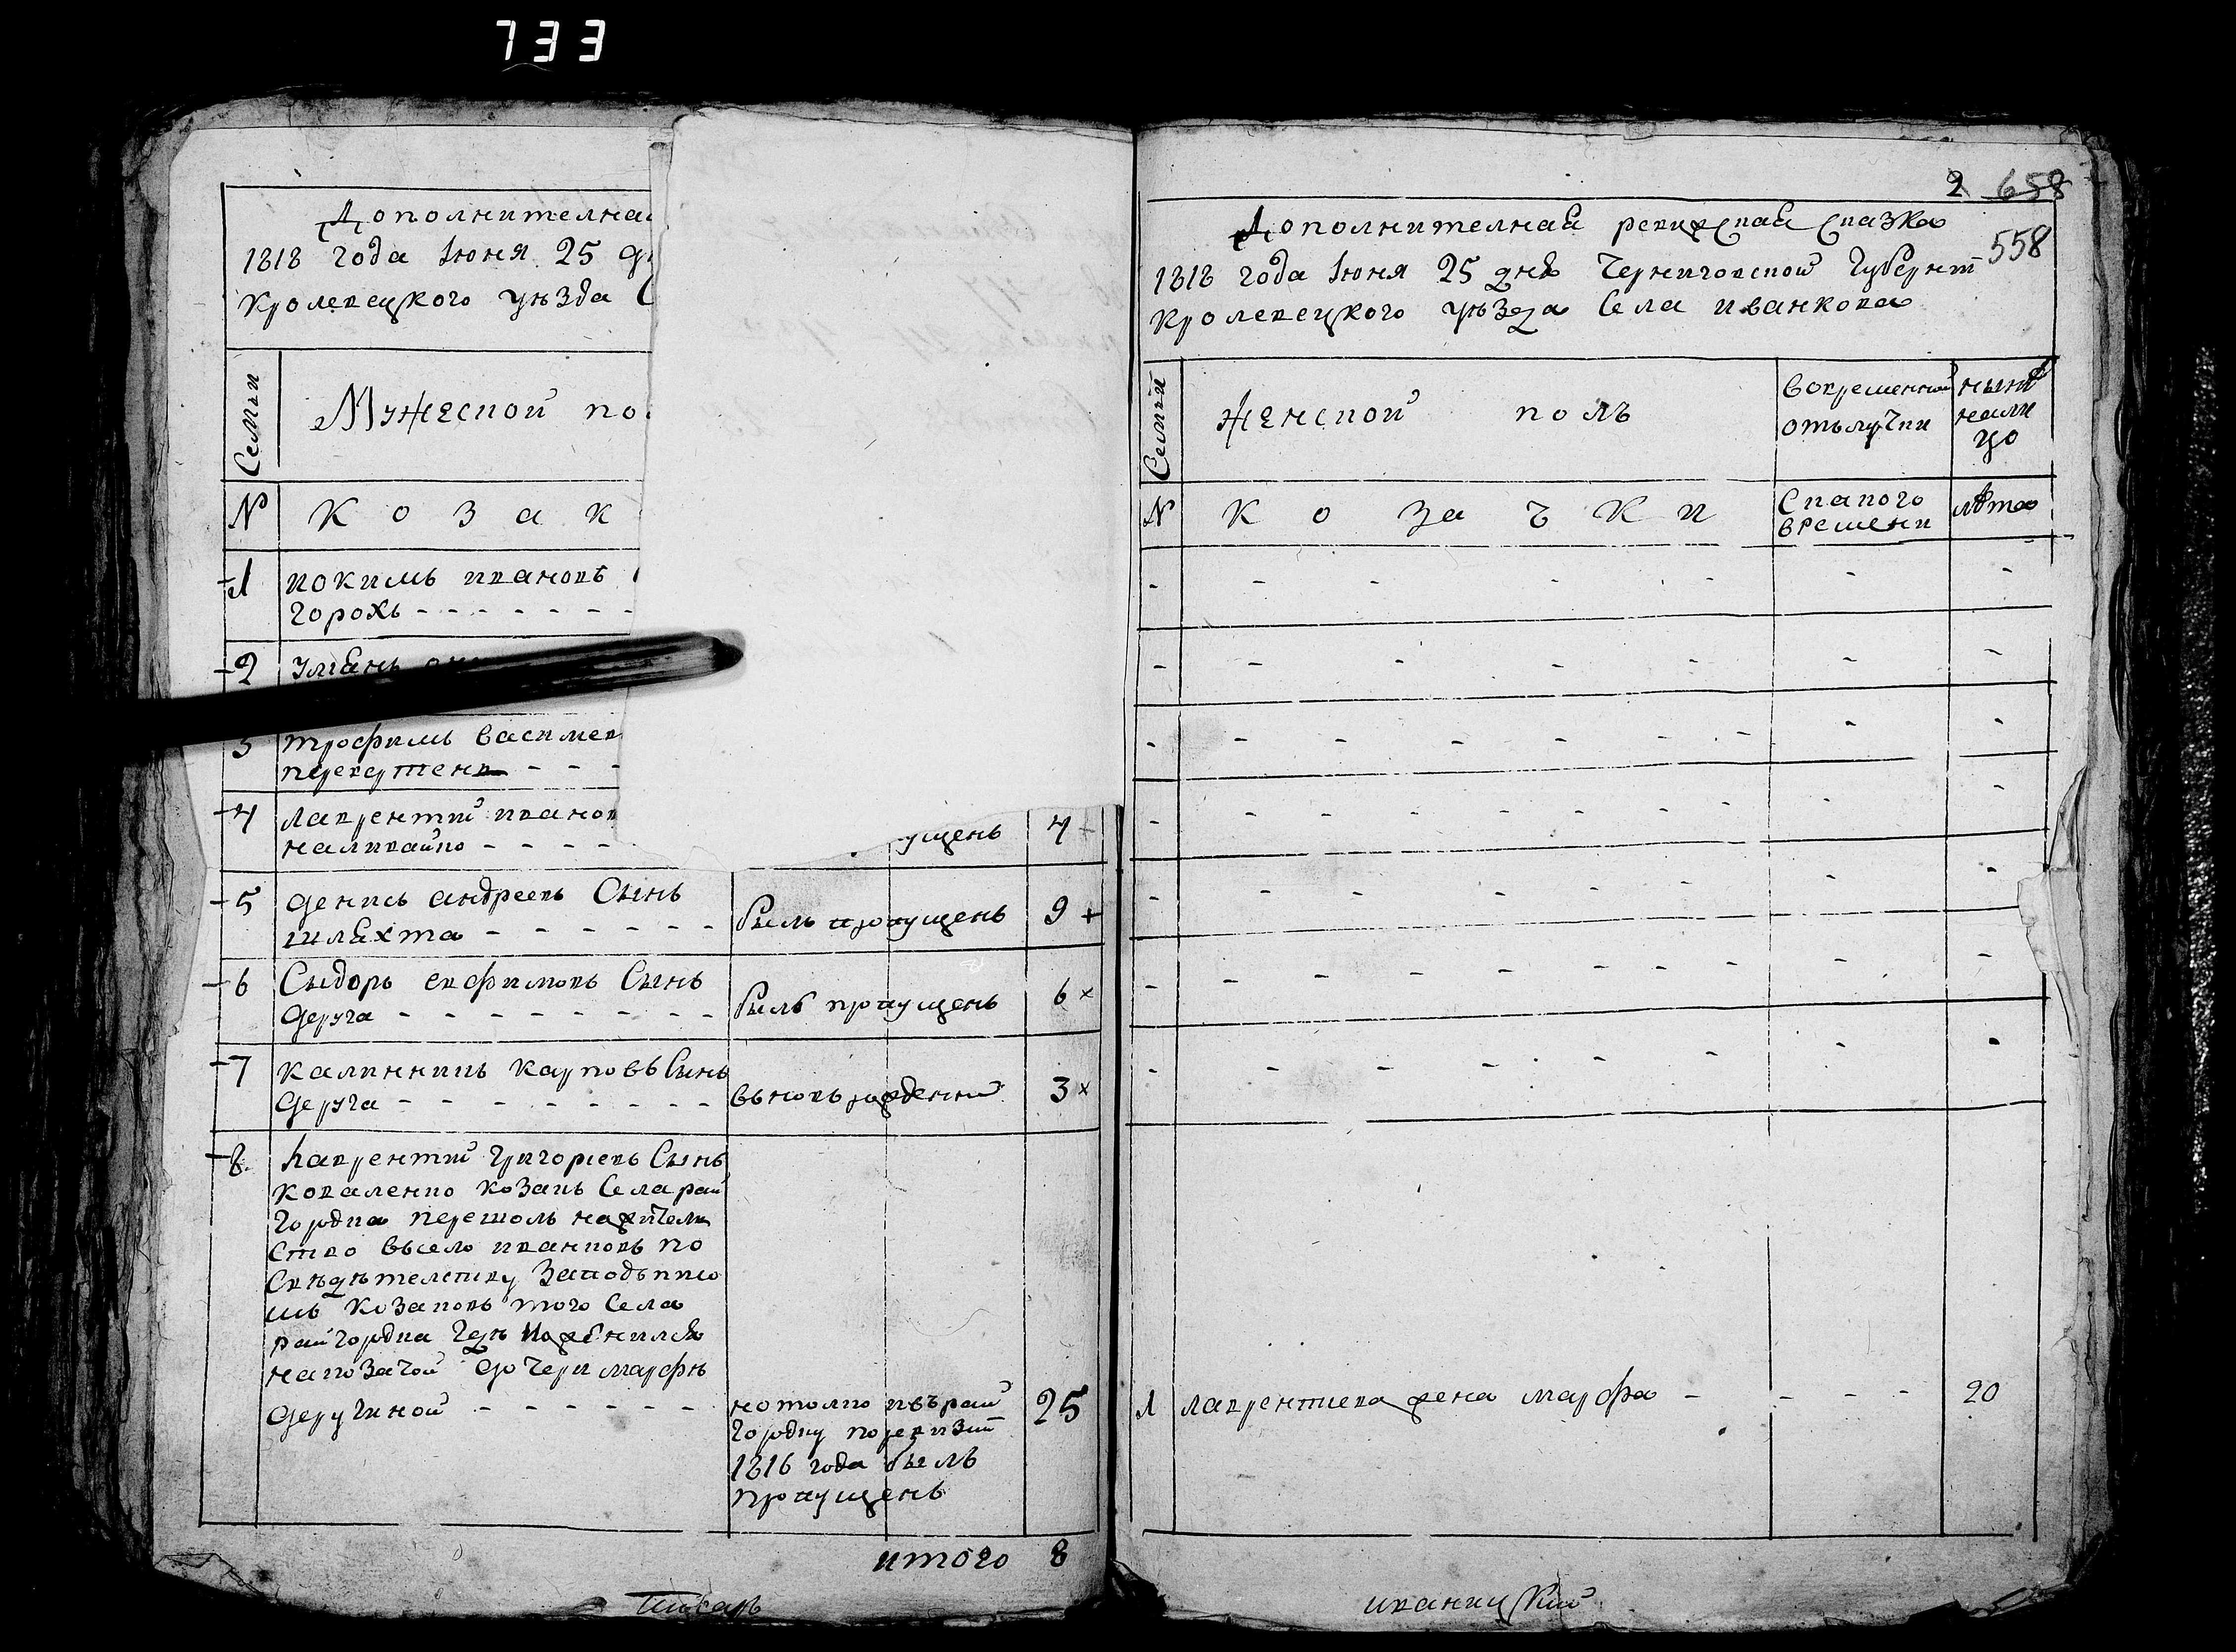 733
Дополнителная
1818 года Июня 25 дн
Кролевецкого уѣзда С
Семьи
Мужеской по
№
К о з а к
1
иокимъ ивановъ
горохъ
2
3
трофимъ василев
перевертень
4
лаврентий иванов
наливайко
ущенъ
4
5
денисъ андреевъ Сынъ
шляхта
былъ пропущенъ
9
6
Сыдоръ евфимовъ Сынъ
деруга
былъ пропущенъ
6
7
калинникъ карповъ Сынъ
деруга
вьновь рожденний
3
8
лаврентий григориевъ Сынъ
коваленко козакъ Села рай
городка перешолъ нажител
ство вьсело иванковъ по
Свѣдѣтелству заподъписо
мъ козаковъ того Села
райгородка гдѣ иоженился
наказачой дочери марфѣ
деругиной
нотолко ивърай
городку поревизий
1816 года былъ
пропущенъ
25
итого 8
Писарь
2 658
558
Дополнителная ревизская Сказка
1818 года Июня 25 дня Черниговской Губернии
Кролевецкого уѣзда Села иванкова
Семьи
женской полъ
вовременной
отьлучки
нынѣ
нали
цо
№
К о за ч К и
Скакого
времени
лѣта
1
лавентиева жена марфа
20
иваницкий